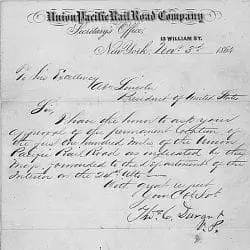 Union Pacific Rail Road Company
Secretary's Office,
13 WILLIAM ST.
New York, Nov. 5th 1864
To His Excellency
A. Lincoln
President of United States
Sir,
I have the honor to ask your
approval of the permanent location of
the first hundred miles of the Union
Pacific Rail Road as indicated on the
Map forwarded to the Department of the
Interior on the 24th Ulto.
With great respect
Your Obt Svt
Thos. C. Durant
V.P.